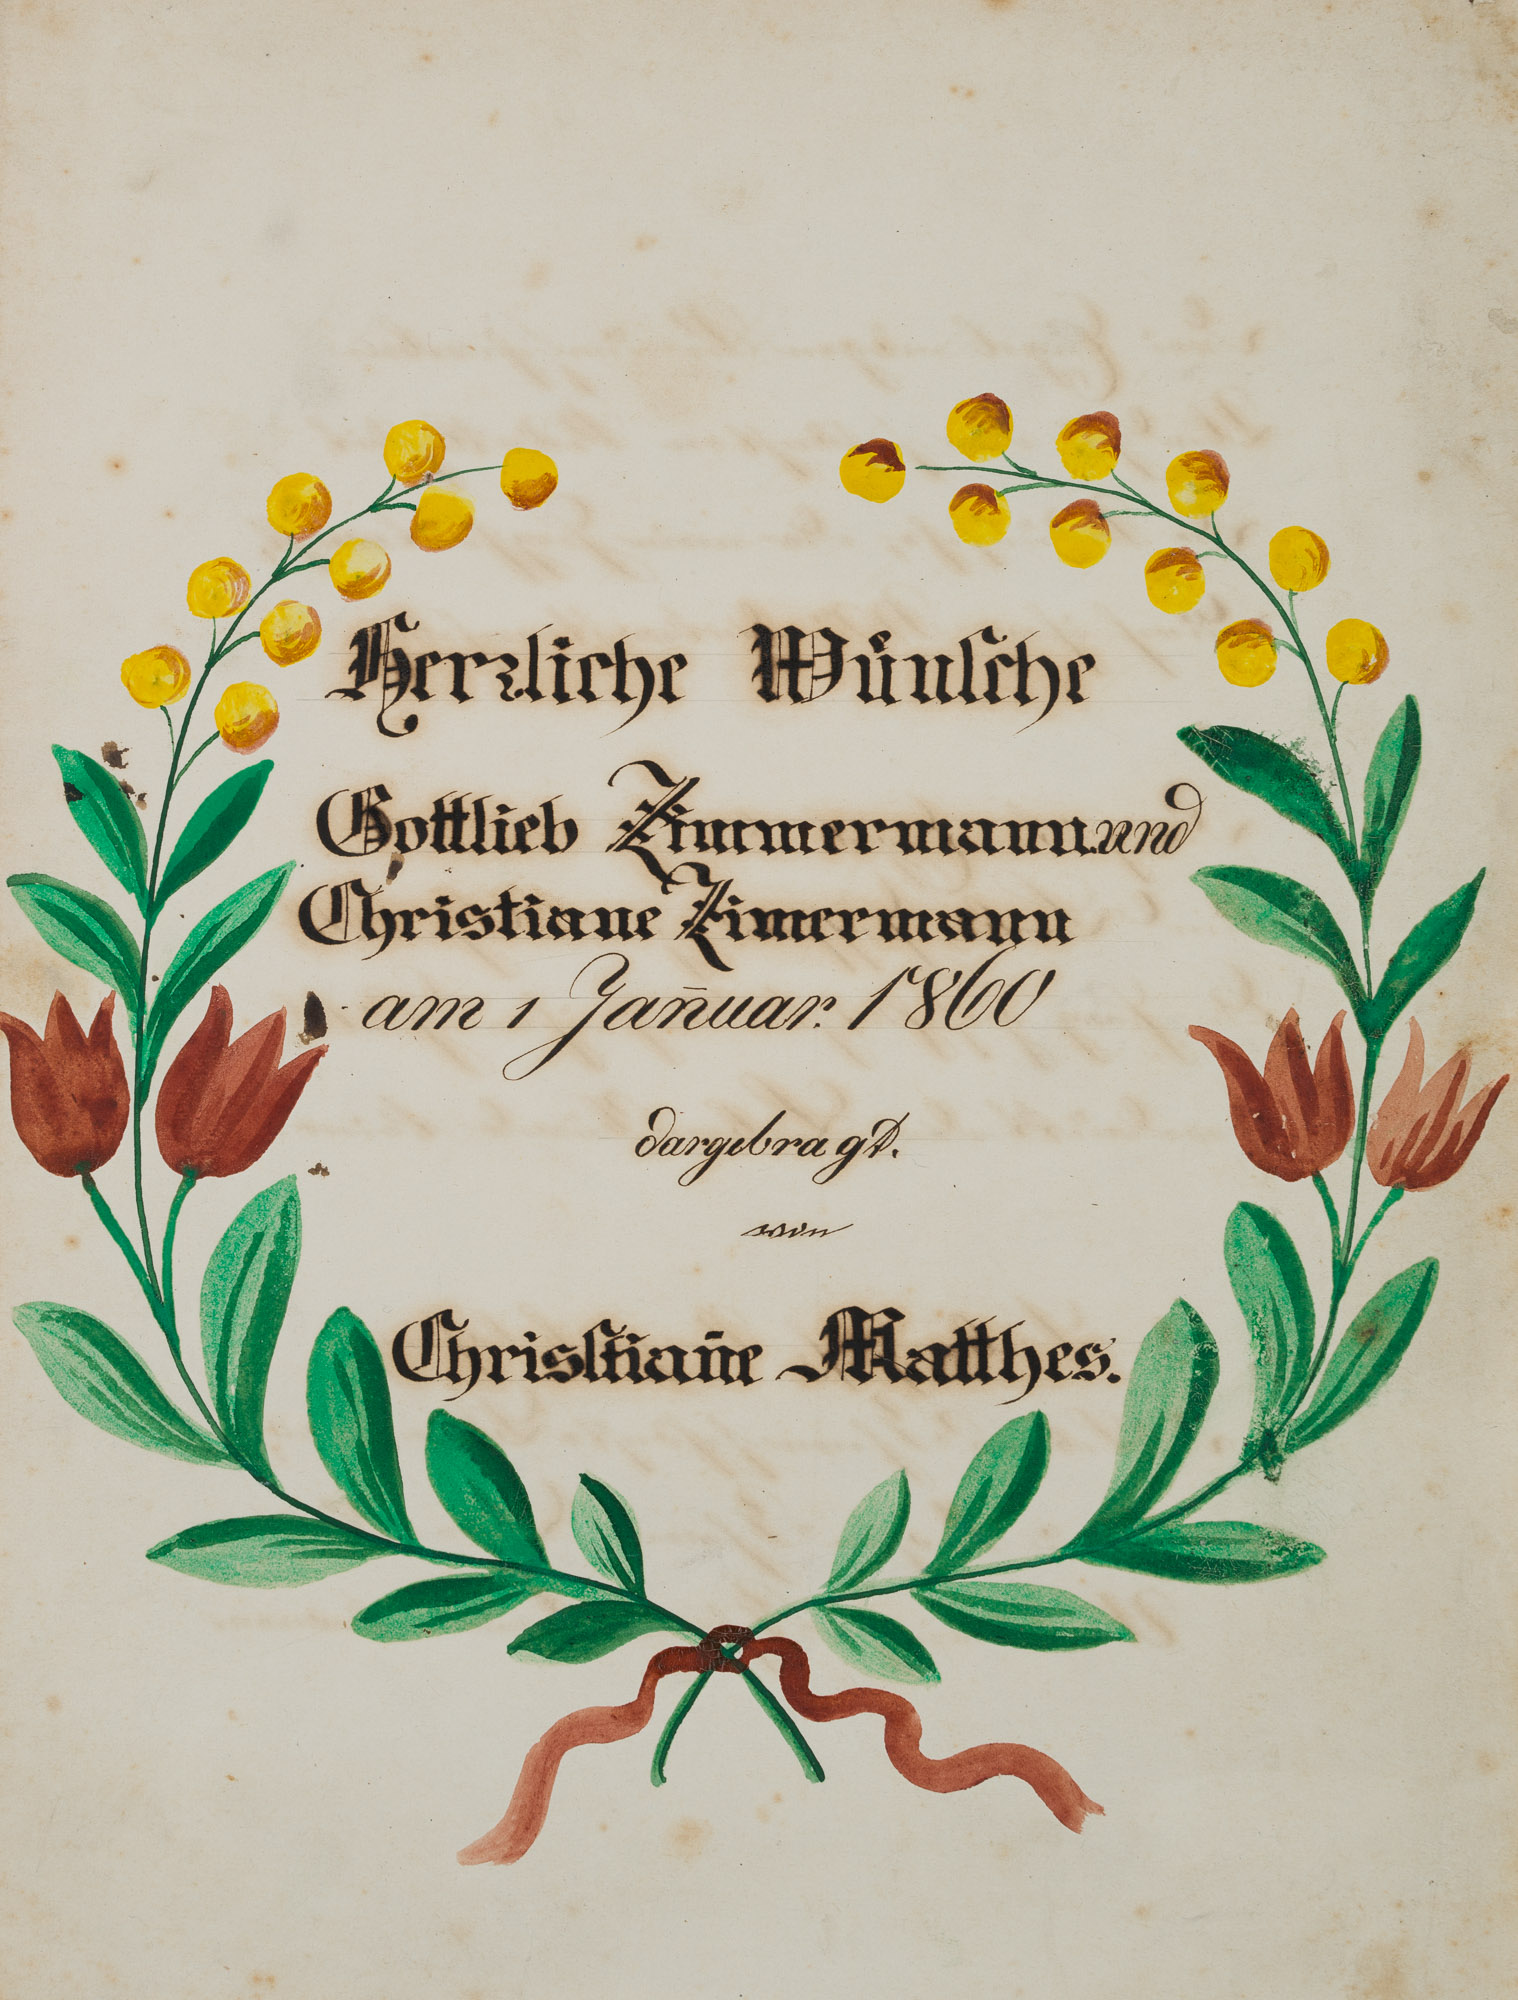 Herzliche Wünsche
Gottlieb Zimmermann und
Christiane Zimermann
am 1 Jan̄uar. 1860
dargebragt.
von
Chrisſtian̄e Matthes.